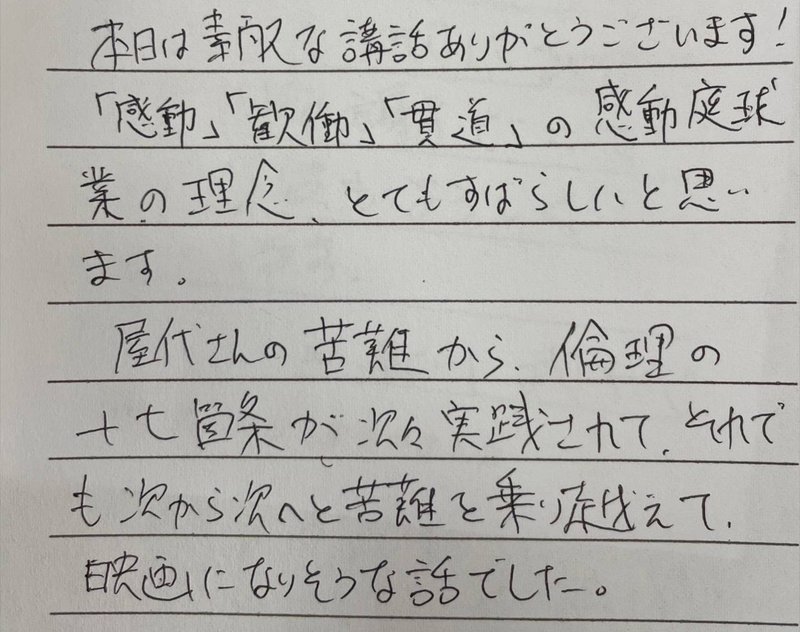 本日は素敵な講話ありがとうございます!
「感動」「歓働」「貫道」の感動庭球
業の理念、とてもすばらしいと思い
ます。
屋代さんの苦難から、倫理の
十七箇条が次々実践されて、それで
も次から次へと苦難を乗り越えて、
映画になりそうな話でした。